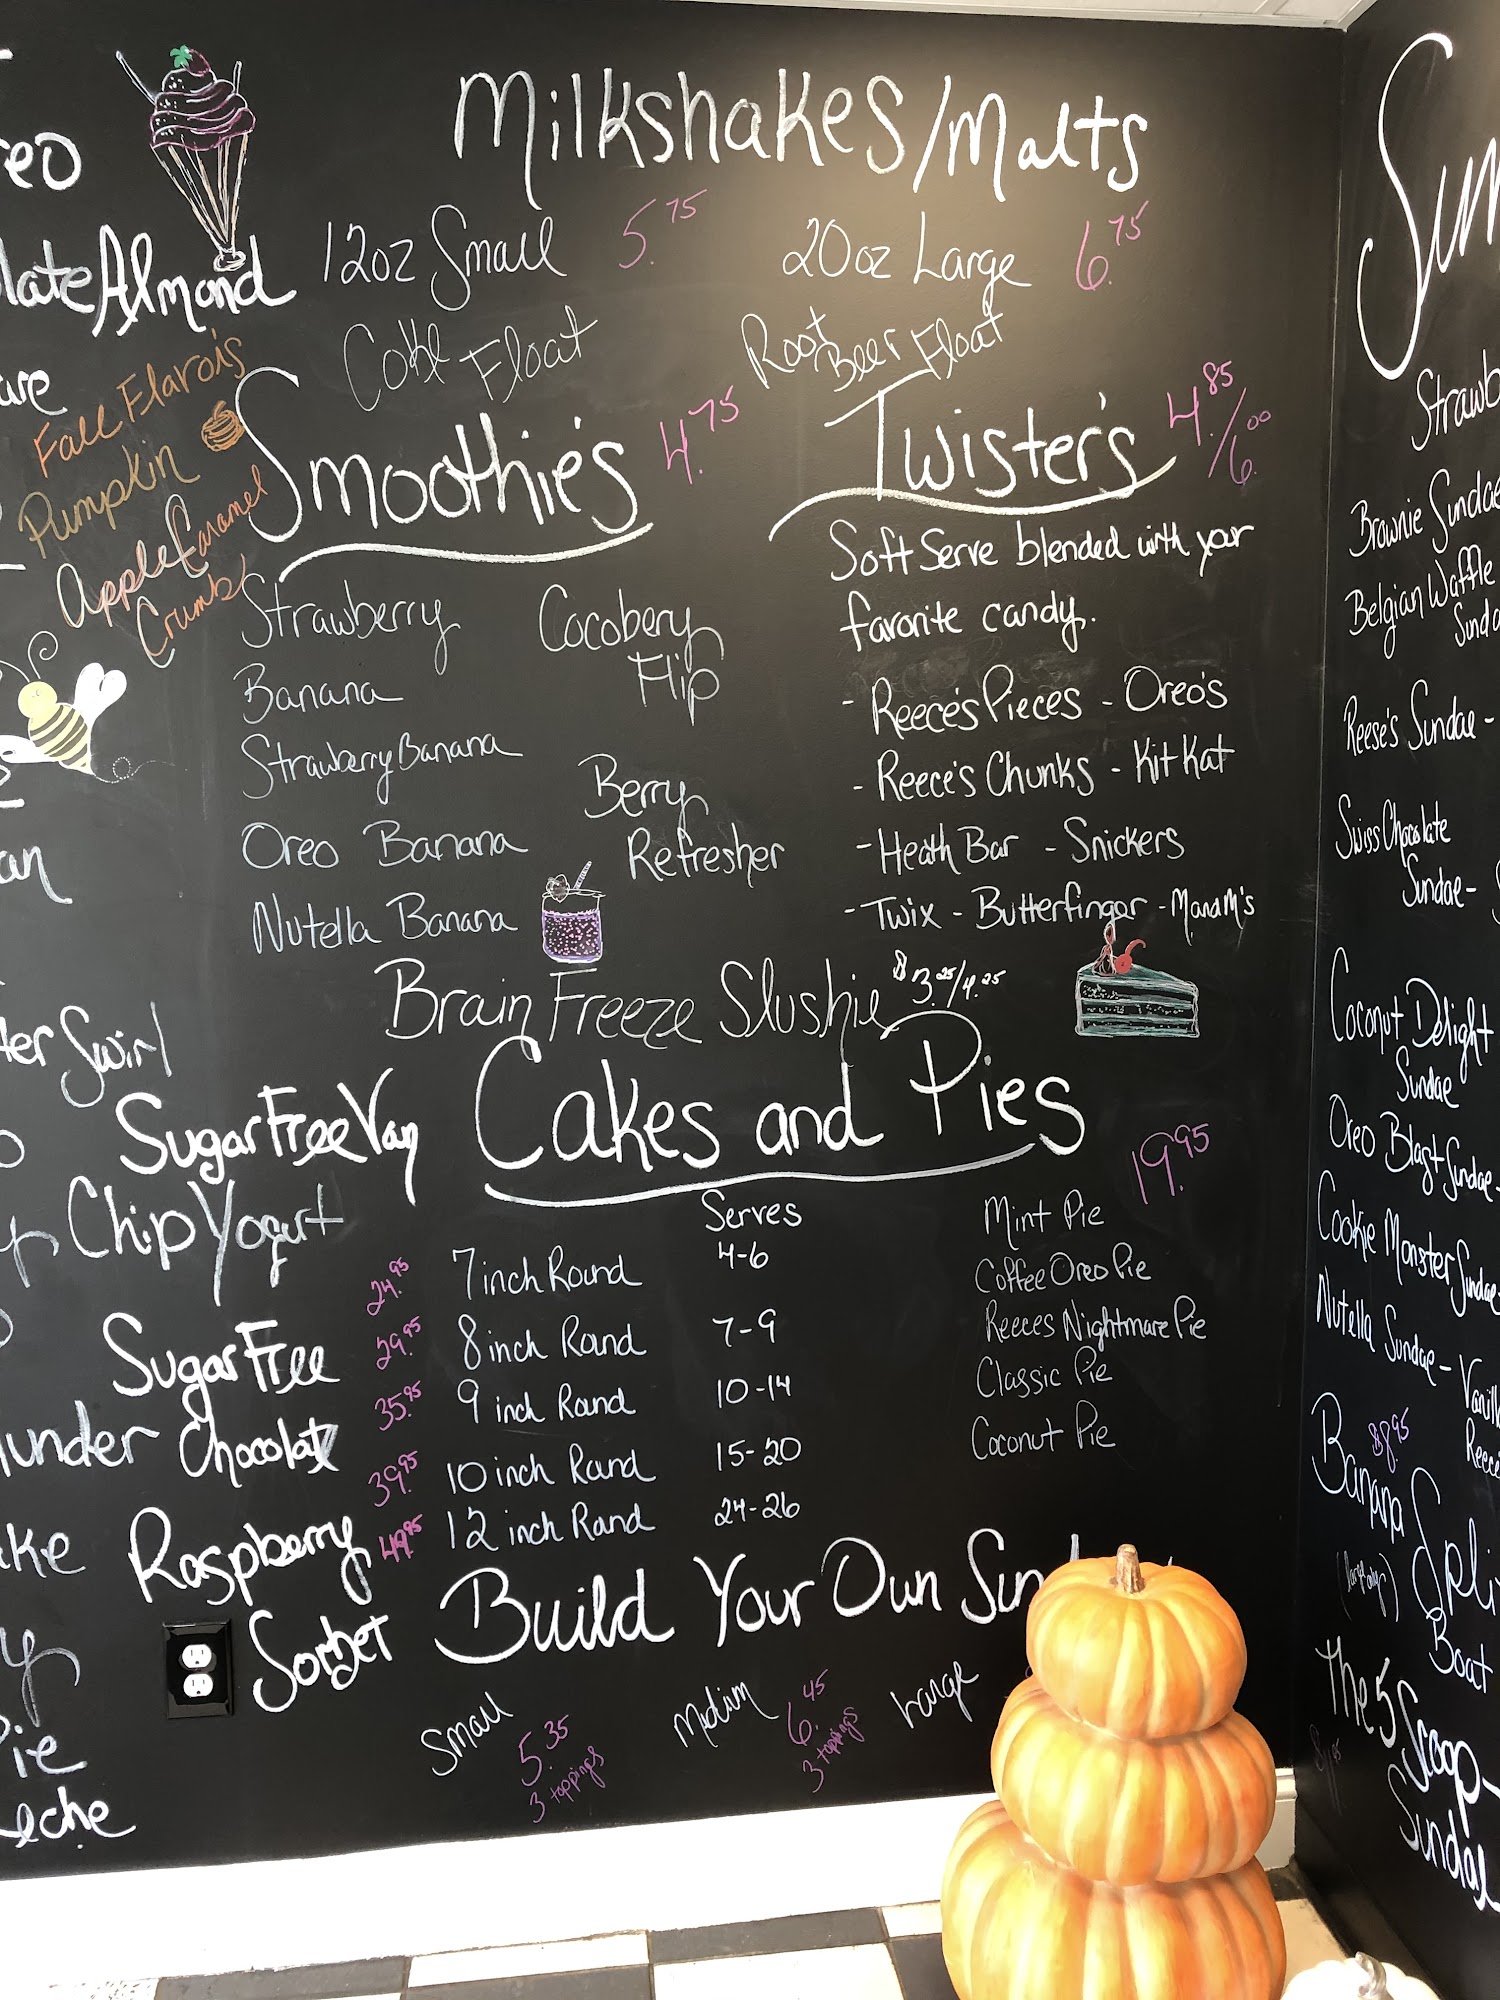 Almond
Fall Flavors
Pumpkin
Apple Caramel
Crumb
Swirl
Sugar Free Van
Chip Yogurt
Sugar Free
Chocolate
Raspberry
Sorbet
Pie
Leche
Milkshakes/Malts
12oz Small 5.75 20oz Large 6.75
Coke Float Root Beer Float
Smoothie's 4.75
Strawberry
Banana
Strawberry Banana
Oreo Banana
Nutella Banana
Cocobery
Flip
Berry
Refresher
Twister's 4.85/6.00
Soft Serve blended with your
favorite candy.
- Reece's Pieces - Oreo's
- Reece's Chunks - Kit Kat
- Heath Bar - Snickers
- Twix - Butterfingar - M and M's
Brain Freeze Slushie $3.25/4.25
Cakes and Pies
Serves
24.95 7 inch Round 4-6
29.95 8 inch Round 7-9
35.95 9 inch Round 10-14
39.95 10 inch Round 15-20
49.95 12 inch Round 24-26
19.95
Mint Pie
Coffee Oreo Pie
Reeces Nightmare Pie
Classic Pie
Coconut Pie
Build Your Own Sun
Small 5.35 3 toppings
Medium 6.45 3 toppings
Large
Sun
Strawb
Brownie Sundae
Belgian Waffle
Sunda
Reese's Sundae -
Swiss Chocolate
Sundae -
Coconut Delight
Sundae
Oreo Blast Sundae -
Cookie Monster Sundae -
Nutella Sundae - Vanill
Reece
Banana $8.95
Spli
Boat
(large only)
The 5 Scoop
Sundae